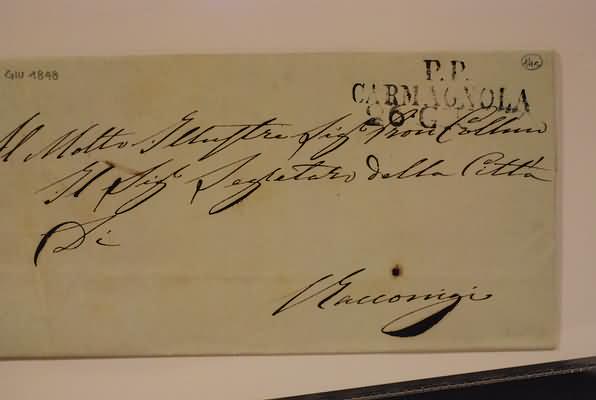 GIU 1848
145
P.P.
CARMAGNOLA
26 G
Al Molto Illustre Sigr Pron Collmo
Il Sigr Segretaro della Città
Di
Racconigi